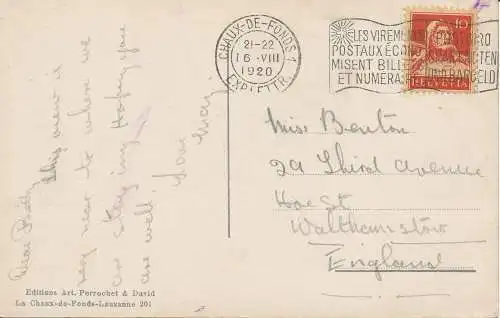 CHAUX-DE-FONDS 1
21-22
16.VIII
1920
EXP. LETTR.
LES VIREMENTS
POSTAUX ÉCONO
MISENT BILLETS
ET NUMÉRAIRE
10
HELVETIA
BARGELD
Dear
This view is
very near to where we
are staying Hoping you
are well Love May.
Miss Benton
29 Third Avenue
Hoe St
Walthamstow
England
Editions Art. Perrochet & David
La Chaux-de-Fonds-Lausanne 201